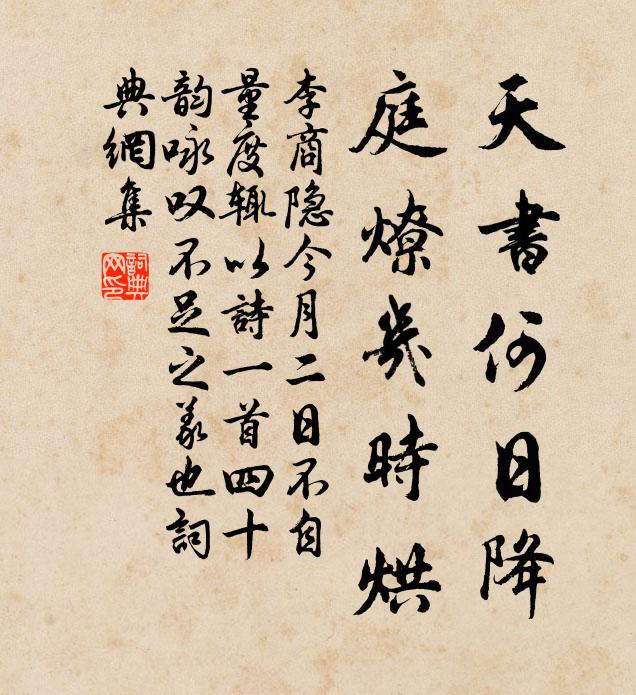 天書何日降
庭燎幾時烘
李商隐今月二日不自
量度輒以詩一首四十
韵咏叹不足之義也詞
典網集
詞典
网印